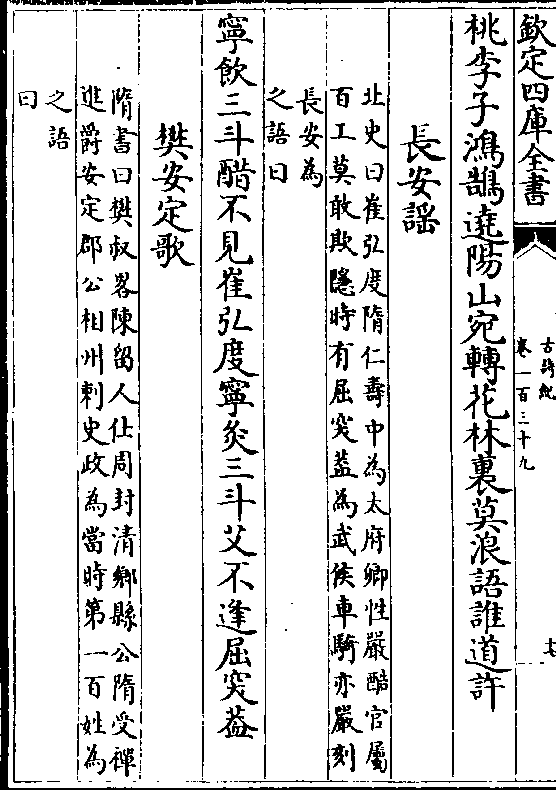 欽定四庫全書
古詩紀
卷一百三十九
桃李子鴻鵠遶陽山宛轉花林裏莫浪語誰道許
長安謠
北史曰崔弘度隋仁壽中為太府卿性嚴酷官屬
百工莫敢欺隱時有屈突葢為武侯車騎亦嚴刻
長安為
之語曰
寧飲三斗醋不見崔弘度寧灸三斗艾不逢屈突葢
樊安定歌
隋書曰樊叔畧陳留人仕周封清鄉縣公隋受禪
進爵安定郡公相州刺史政為當時第一百姓為
之語
曰